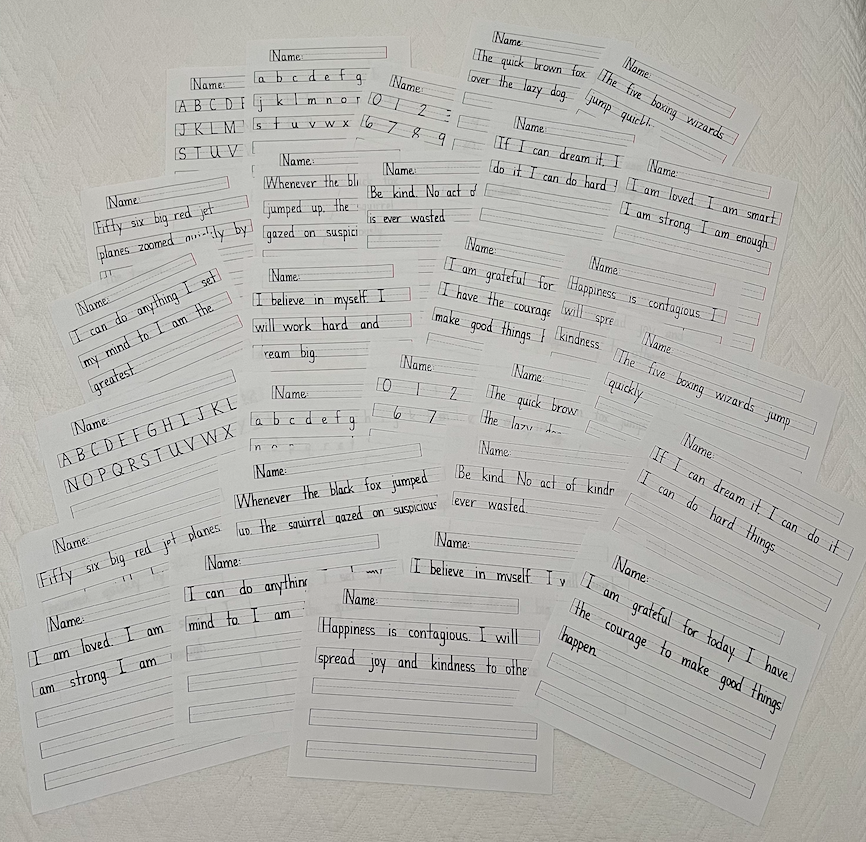 Name:
A B C D F
J K L M
S T U V
Name:
a b c d e f g
j k l m n o r
s t u v w x
Name:
0 1 2
6 7 8 9
Name:
The quick brown fox
over the lazy dog.
Name:
The five boxing wizards
jump
Name:
Fifty six big red jet
planes zoomed quickly by
Name:
Whenever the
jumped up. the
gazed on
Name:
Be kind. No act
is ever wasted
Name:
If I can dream it. I
do it I can do hard
Name:
I am loved I am smart.
I am strong I am enough.
Name:
I can do anything I set
my mind to I am the
greatest
Name:
I believe in myself. I
will work hard and
ream big
Name:
I am grateful for
I have the courage
make good things
Name:
Happiness is contagious I
will spre
kindness
Name:
A B C D E F G H I J K L
N O P Q R S T U V W X
Name:
a b c d e f g
Name:
0 1 2
6 7
Name:
The quick brow
the lazy
Name:
The five boxing wizards jump
quickly.
Name:
Fifty six big red jet planes
Name:
Whenever the black fox jumped
up. the squirrel gazed on suspicious
Name:
Be kind No act of kindr
ever wasted.
Name:
If I can dream it I can do it.
I can do hard things.
Name:
I am loved. I am
am strong. I am
Name:
I can do anything
mind to. I am
Name:
I believe in myself I
Name:
Happiness is contagious. I will
spread joy and kindness to othe
Name:
I am grateful for today I have
the courage to make good things
happen.